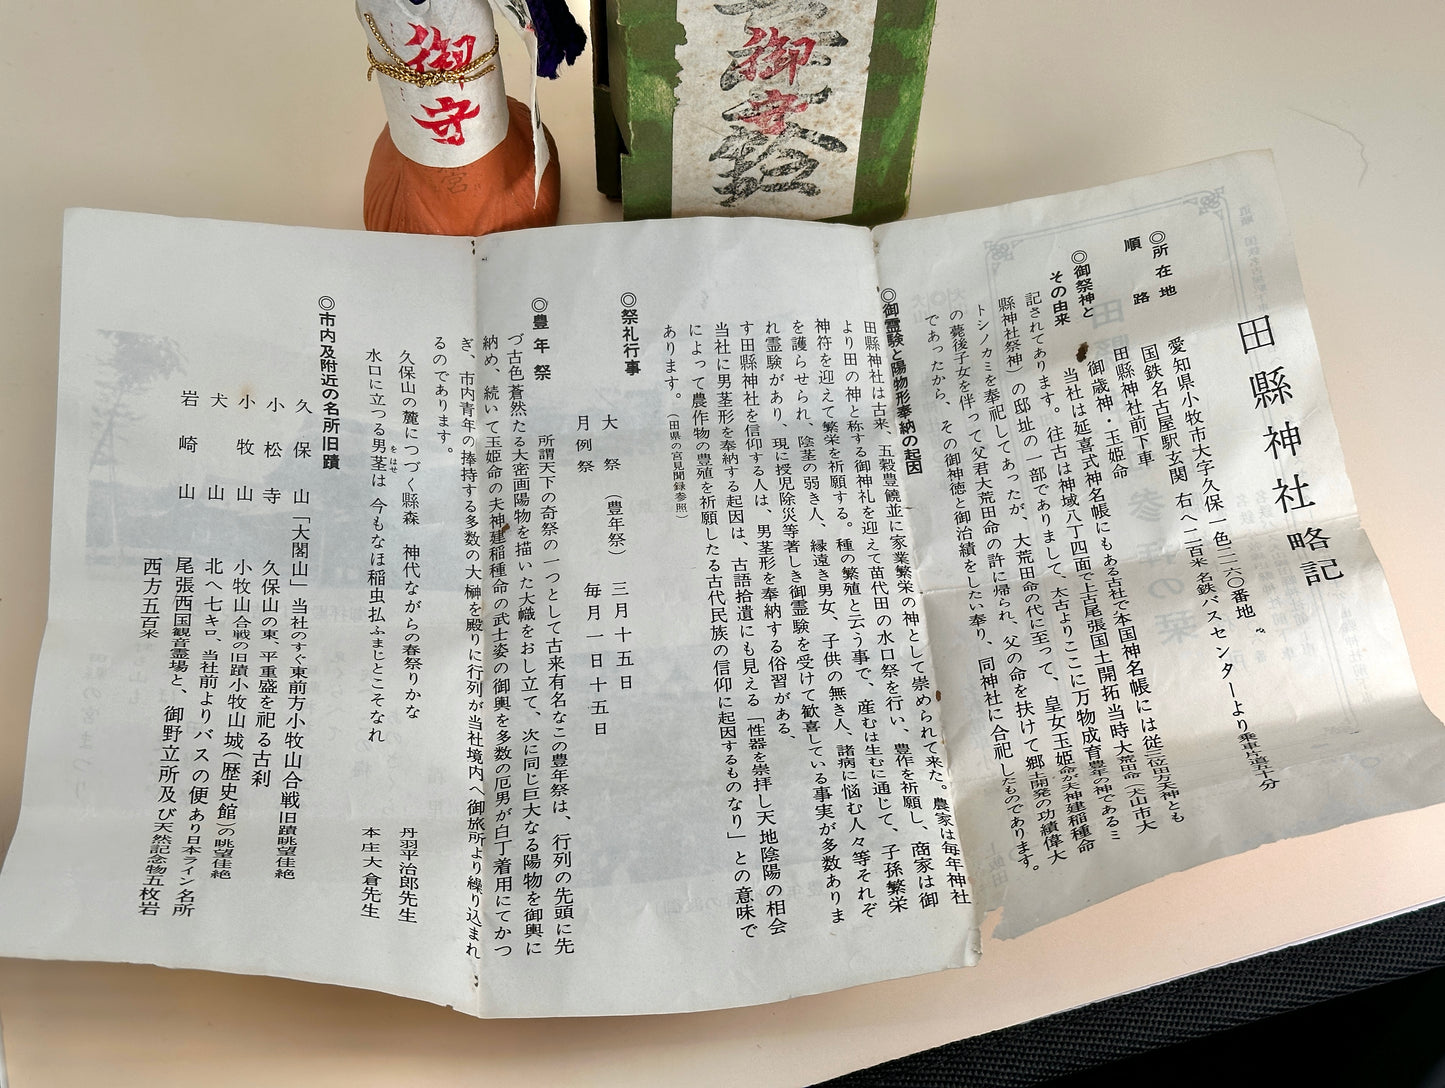 御守
御守鈴
田縣神社略記
◎所在地　愛知県小牧市大字久保一色二二六〇番地
順路　国鉄名古屋駅玄関　右へ二百米　名鉄バスセンターより乗車片道五十分
田縣神社前下車
◎御祭神と
その由来
御歳神・玉姫命
当社は延喜式神名帳にもある古社で本国神名帳には従三位田方天神とも
記されてあります。往古は神域八丁四面で上古尾張国土開拓当時大荒田命（犬山市大
縣神社祭神）の邸址の一部でありまして、太古よりここに万物成育豊年の神であるミ
トシノカミを奉祀してあったが、大荒田命の代に至って、皇女玉姫命が夫神建稲種命
の薨後子女を伴って父君大荒田命の許に帰られ、父の命を扶けて郷土開発の功績偉大
であったから、その御神徳と御治績をしたい奉り、同神社に合祀したものであります。
◎御霊験と陽物形奉納の起因
田縣神社は古来、五穀豊饒並に家業繁栄の神として崇められて来た。農家は毎年神社
より田の神と称する御神札を迎えて苗代田の水口祭を行い、豊作を祈願し、商家は御
神符を迎えて繁栄を祈願する。種の繁殖と云う事で、産むは生むに通じて、子孫繁栄
を護らせられ、陰茎の弱き人、縁遠き男女、子供の無き人、諸病に悩む人々等それぞ
れ霊験があり、現に授児除災等著しき御霊験を受けて歓喜している事実が多数ありま
す田縣神社を信仰する人は、男茎形を奉納する俗習がある、
当社に男茎形を奉納する起因は、古語拾遺にも見える「性器を崇拝し天地陰陽の相会
によって農作物の豊殖を祈願したる古代民族の信仰に起因するものなり」との意味で
あります。（田県の宮見聞録参照）
◎祭礼行事
大祭（豊年祭）　三月十五日
月例祭　毎月一日十五日
◎豊年祭
所謂天下の奇祭の一つとして古来有名なこの豊年祭は、行列の先頭に先
づ古色蒼然たる大密画陽物を描いた大幟をおし立て、次に同じ巨大なる陽物を御輿に
納め、続いて玉姫命の夫神建稲種命の武士姿の御輿を多数の厄男が白丁着用にてかつ
ぎ、市内青年の捧持する多数の大榊を殿りに行列が当社境内へ御旅所より繰り込まれ
るのであります。
久保山の麓につづく縣森　神代ながらの春祭りかな　丹羽平治郎先生
水口に立つる男茎は　今もなほ稲虫払ふまじとこそなれ　本庄大倉先生
をはせ
◎市内及附近の名所旧蹟
久保山　「大閣山」当社のすぐ東前方小牧山合戦旧蹟眺望佳絶
小松寺　久保山の東、平重盛を祀る古刹
小牧山　小牧山合戦の旧蹟小牧山城（歴史館）の眺望佳絶
犬山　北へ七キロ、当社前よりバスの便あり日本ライン名所
岩崎山　尾張西国観音霊場と、御野立所及び天然記念物五枚岩
西方五百米